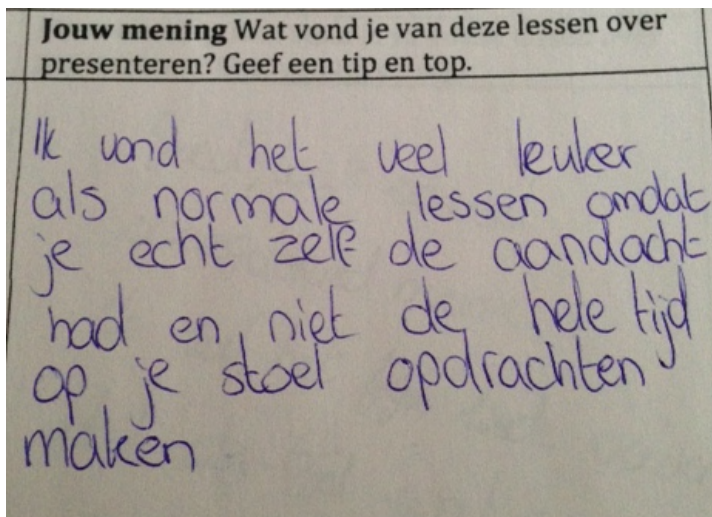 Jouw mening Wat vond je van deze lessen over
presenteren? Geef een tip en top.
Ik vond het veel leuker
als normale lessen omdat
je echt zelf de aandacht
had en niet de hele tijd
op je stoel opdrachten
maken